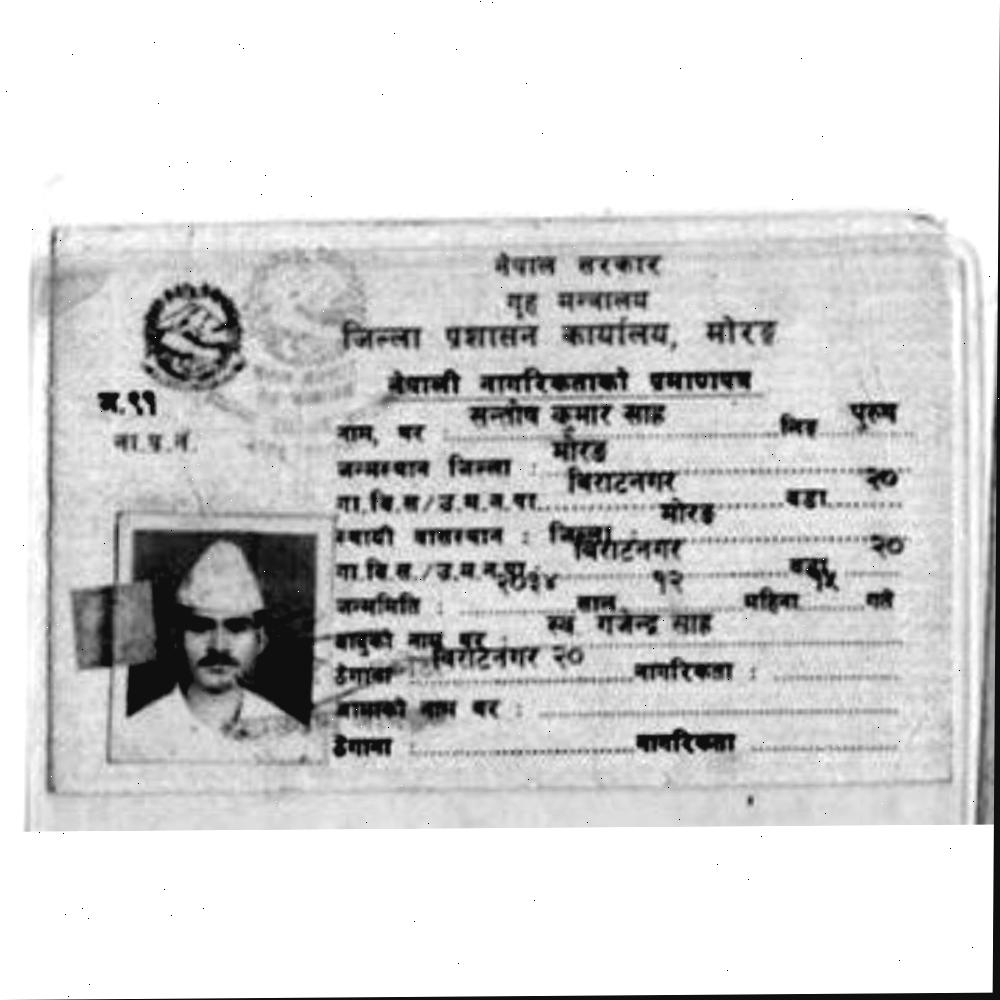 नेपाल सरकार
गृह मन्त्रालय
जिल्ला प्रशासन कार्यालय, मोरङ
नेपाली नागरिकताको प्रमाणपत्र
ना.प्र.नं.
नाम, थर सन्तोष कुमार साह लिङ्ग पुरुष
जन्मस्थान जिल्ला : मोरङ
गा.वि.स/उ.म.न.पा. बिराटनगर वडा २०
स्थायी वासस्थान : जिल्ला : मोरङ
गा.वि.स./उ.म.न.पा. बिराटनगर वडा २०
जन्ममिति : २०३४ साल १२ महिना १५ गते
बाबुको नाम थर : स्व गजेन्द्र साह
ठेगाना बिराटनगर २० नागरिकता :
आमाको नाम थर :
ठेगाना : नागरिकता